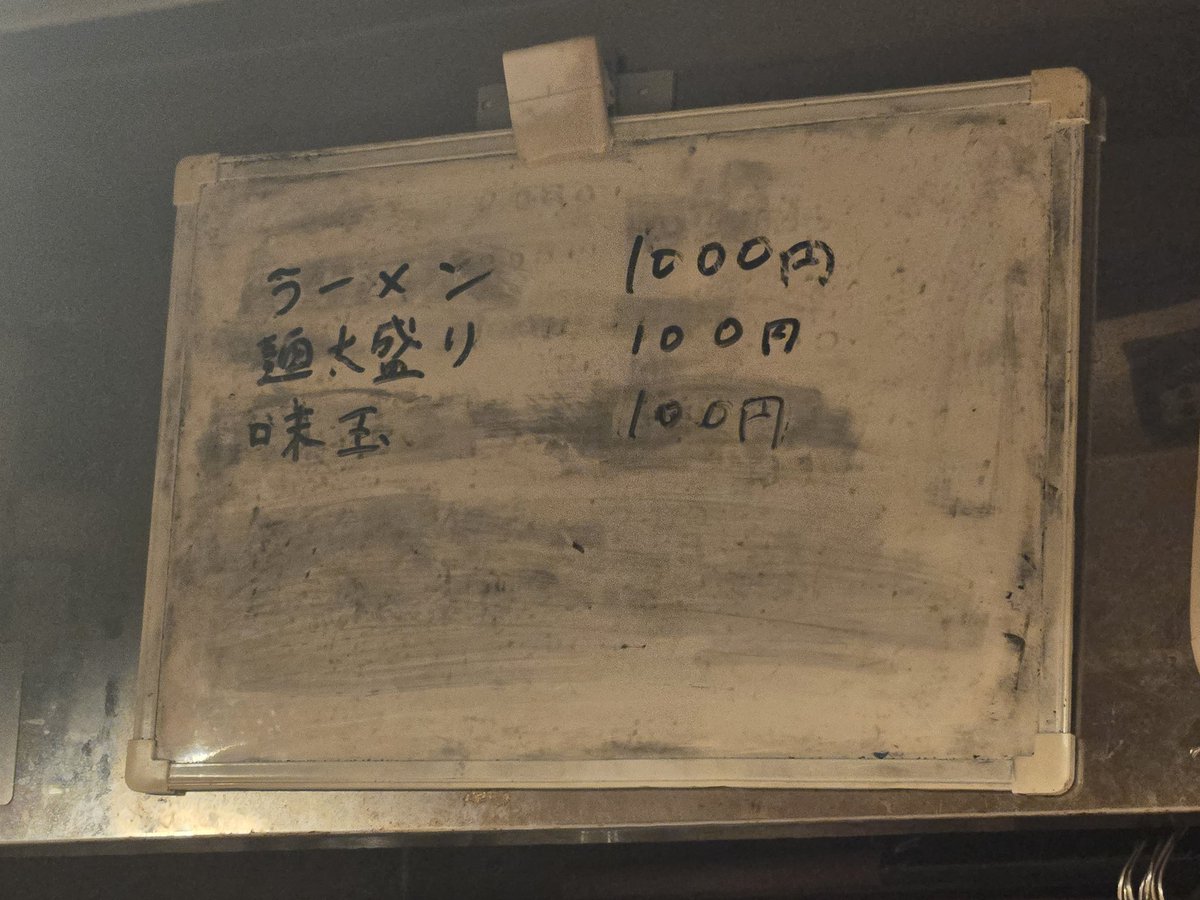 ラーメン 1000円
麺大盛り 100円
味玉 100円